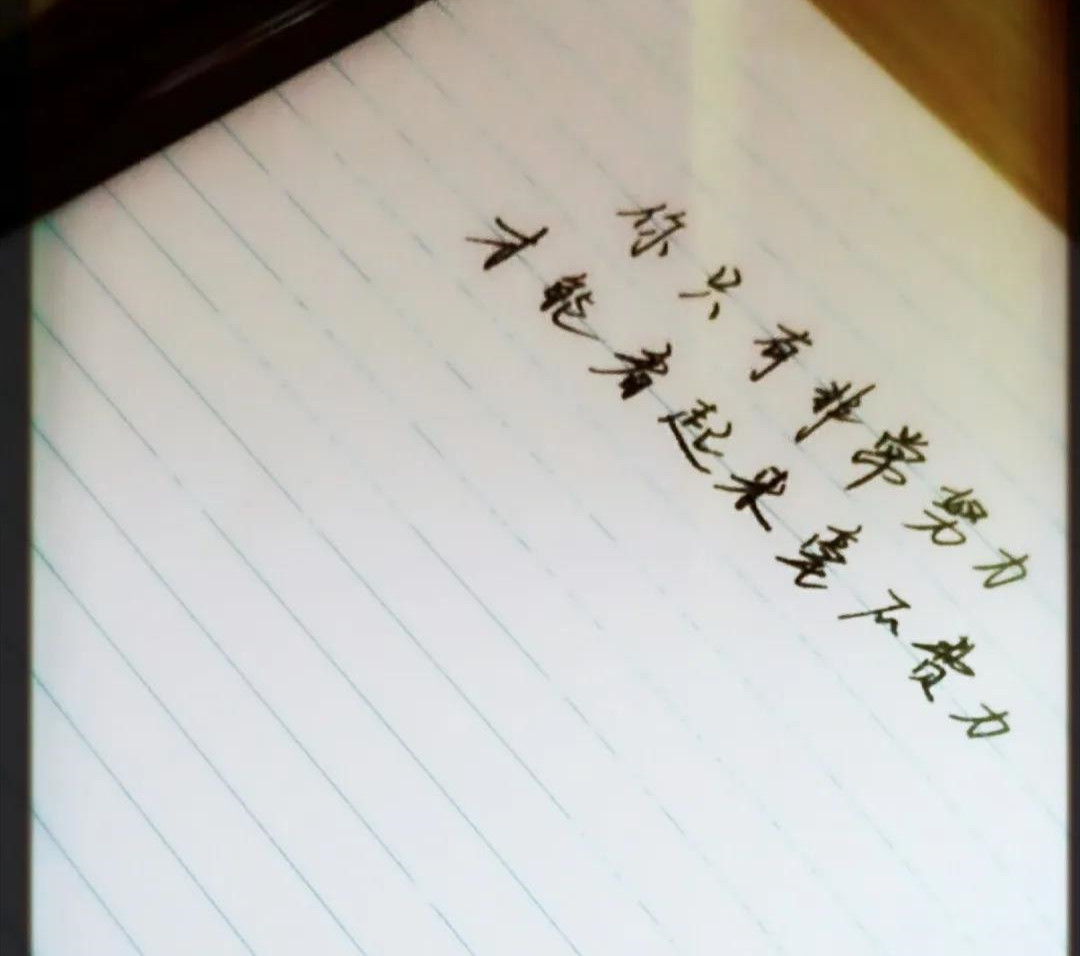 你只有非常努力
才能看起来毫不费力